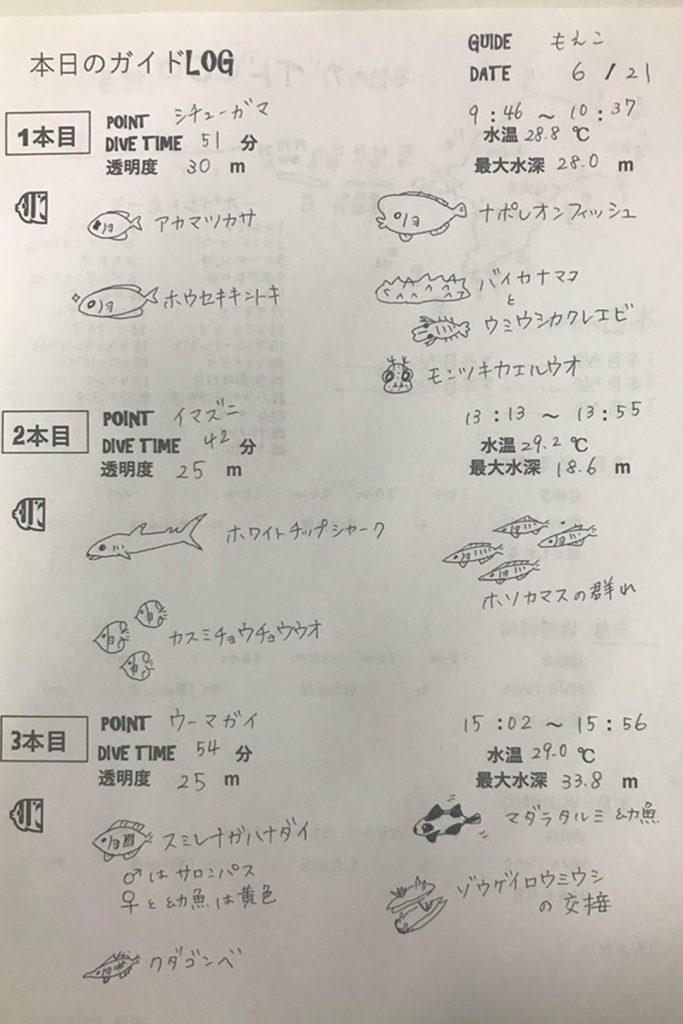 本日のガイドLOG
GUIDE もえこ
DATE 6/21
1本目
POINT シチューガマ
DIVE TIME 51 分
透明度 30 m
9:46 ～ 10:37
水温 28.8 ℃
最大水深 28.0 m
アカマツカサ
ナポレオンフィッシュ
ホウセキキントキ
バイカナマコ
と
ウミウシカクレエビ
モンツキカエルウオ
2本目
POINT イマズニ
DIVE TIME 42 分
透明度 25 m
13:13 ～ 13:55
水温 29.2 ℃
最大水深 18.6 m
ホワイトチップシャーク
ホソカマスの群れ
カスミチョウチョウウオ
3本目
POINT ウーマガイ
DIVE TIME 54 分
透明度 25 m
15:02 ～ 15:56
水温 29.0 ℃
最大水深 33.8 m
スミレナガハナダイ
♂はサロンパス
♀と幼魚は黄色
マダラタルミ幼魚
ゾウゲイロウミウシ
の交接
クダゴンベ